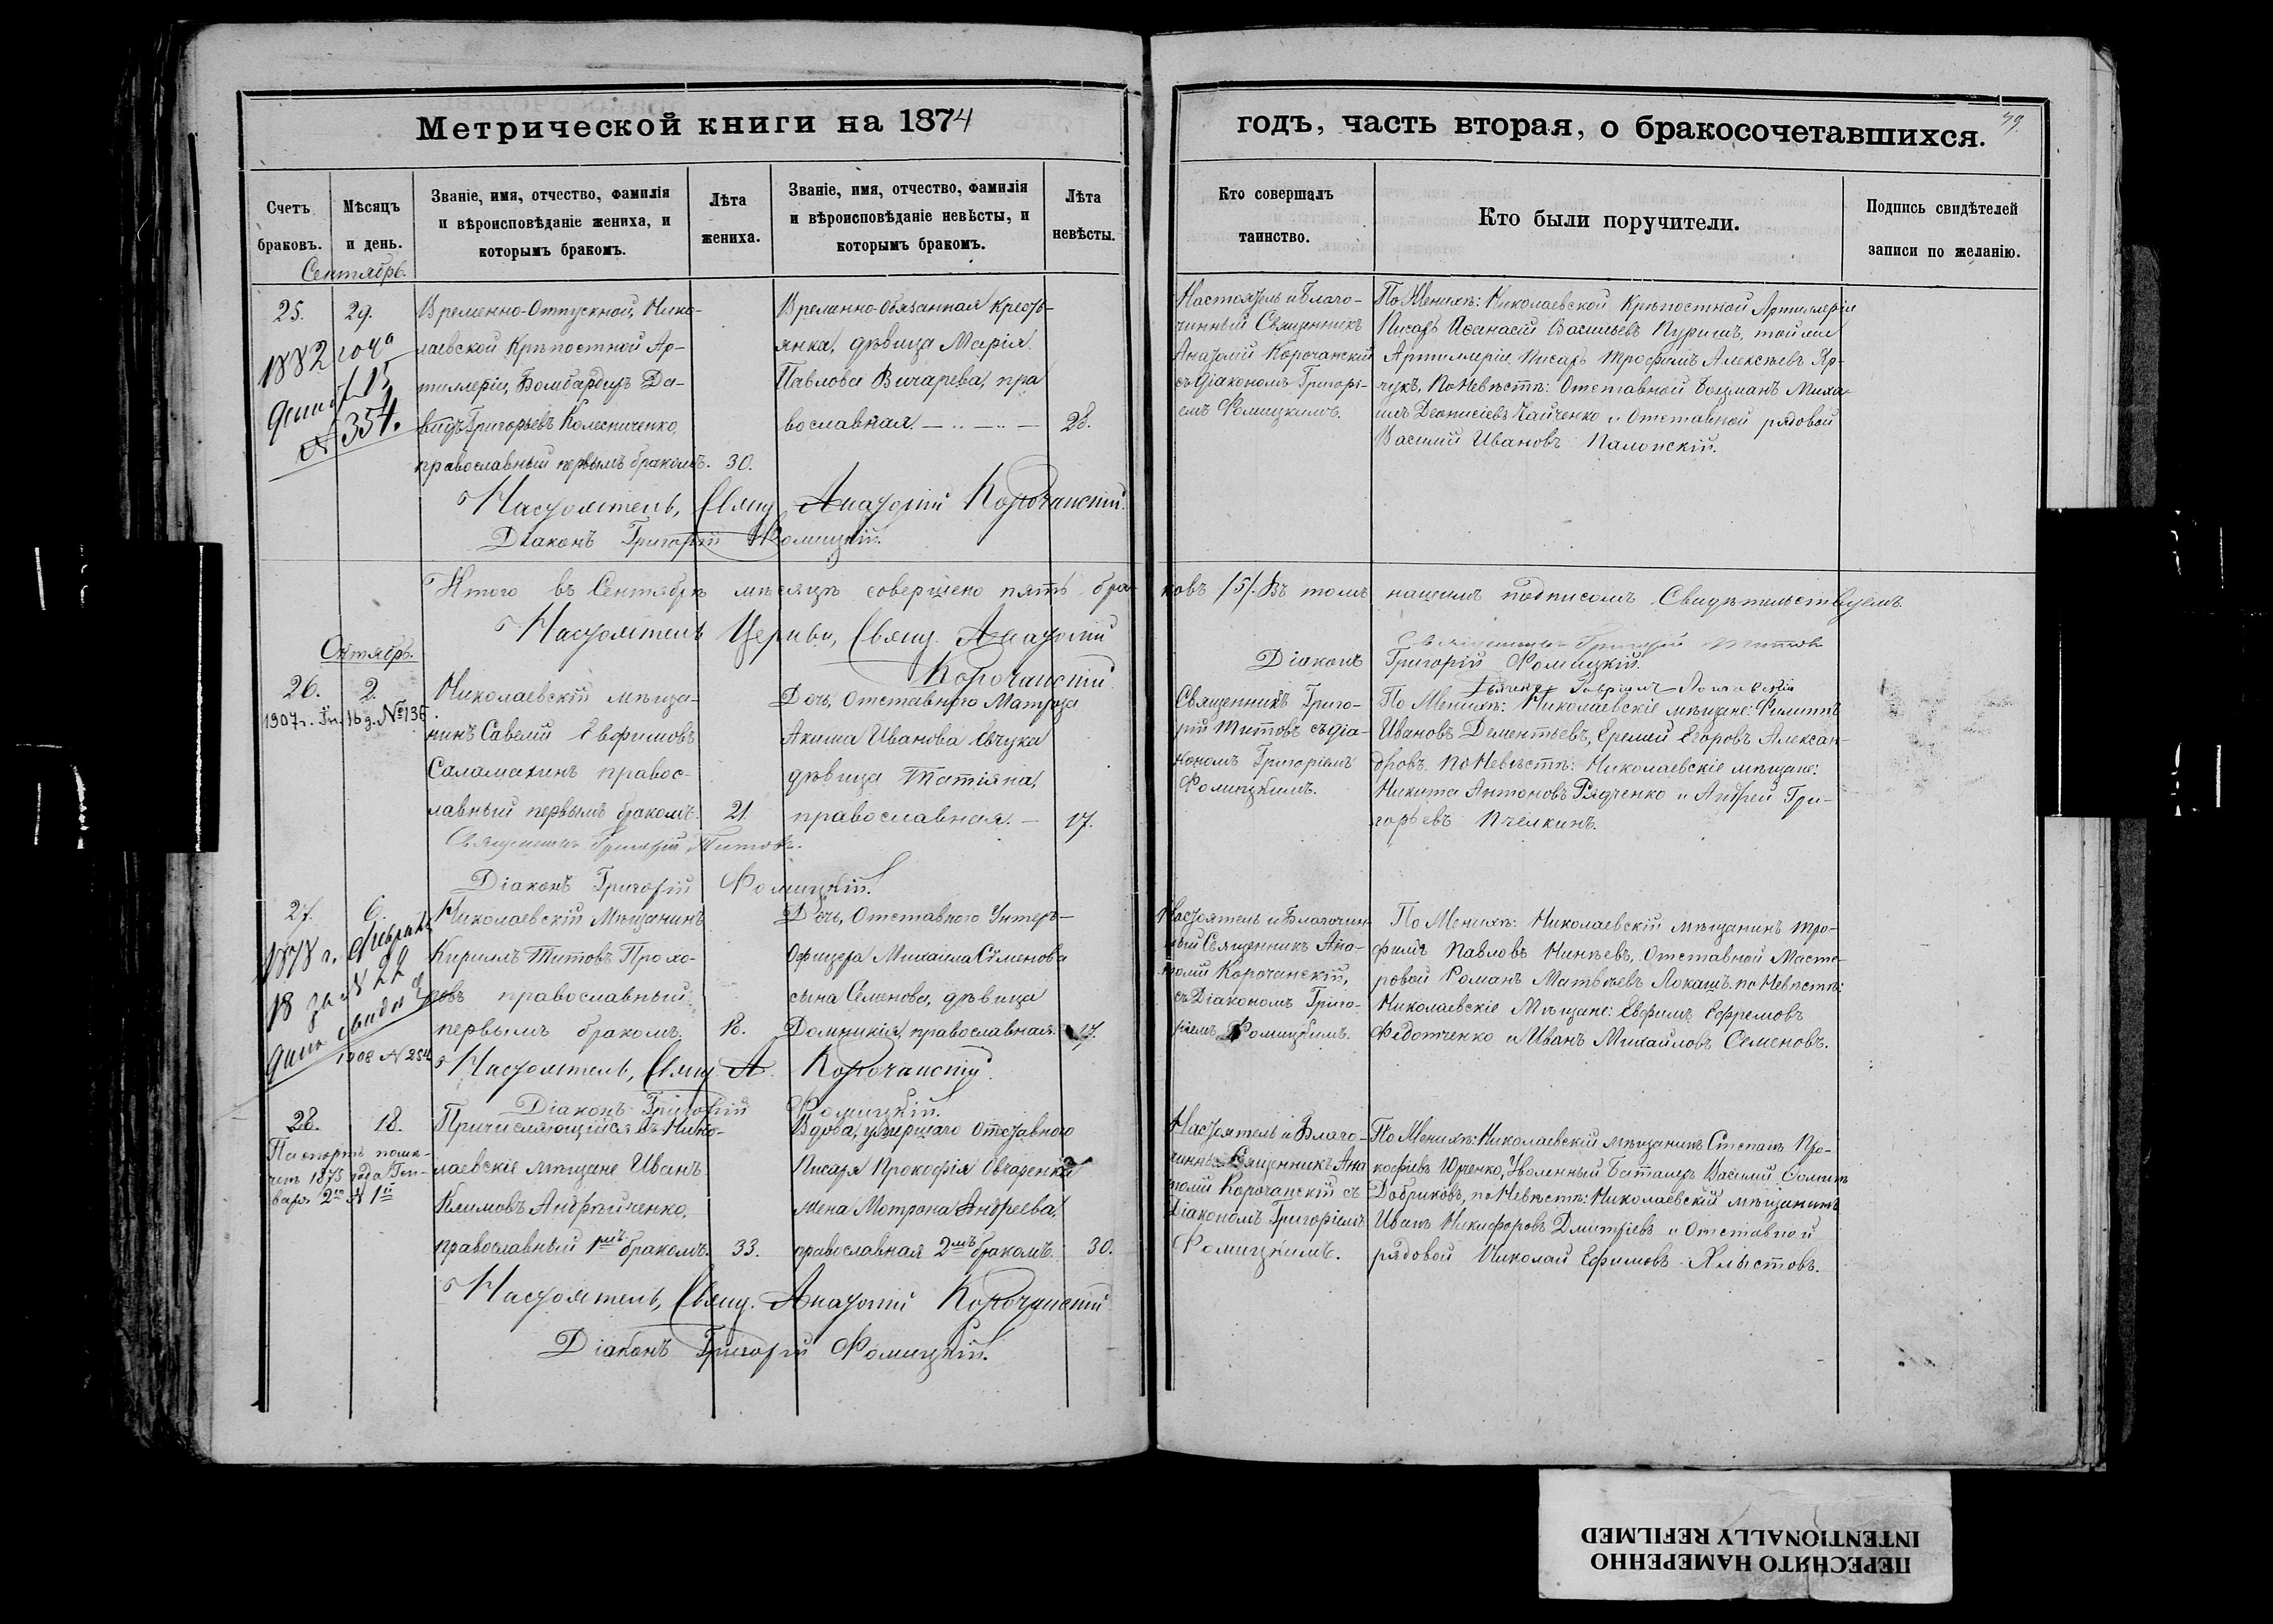 Метрической книги на 1874
годъ, часть вторая, о бракосочетавшихся.
Счетъ
браковъ.
Мѣсяцъ
и день.
Званіе, имя, отчество, фамилія
и вѣроисповѣданіе жениха, и
которымъ бракомъ.
Лѣта
жениха.
Званіе, имя, отчество, фамилія
и вѣроисповѣданіе невѣсты, и
которымъ бракомъ.
Лѣта
невѣсты.
Кто совершалъ
таинство.
Кто были поручители.
Подпись свидѣтелей
записи по желанію.
Сентябрь.
25.
29.
1882 года
№ 354.
Временно-Отпускной, Нико-
лаевской Крѣпостной Ар-
тиллеріи, Бомбардиръ Да-
видъ Григорьевъ Колесниченко,
православный первымъ бракомъ.
30.
Временно-Обязанная Кресть-
янка, дѣвица Марія
Павлова Вичарева, пра
вославная.
28.
Настоятель и Благо-
чинный Священникъ
Анатолій Корочанскій
съ Діакономъ Григорі-
емъ Фомицкимъ.
По Женихѣ: Николаевской Крѣпостной Артиллеріи
Писарь Афанасій Васильевъ Пуришъ, той же
Артиллеріи Писарь Трофимъ Алексѣевъ Яр-
чукъ, По Невѣстѣ: Отставной Боцманъ Миха-
илъ Деонисіевъ Чайченко и Отставной рядовой
Василій Ивановъ Палопскій.
Настоятель, Свящ. Анатолій Корочанскій.
Діаконъ Григорій Фомицкій.
Итого въ Сентябрѣ мѣсяцѣ совершено пять бра-
ковъ /5/. Въ томъ нашимъ подписомъ Свидѣтельствуемъ.
Настоятель Церкви, Свящ. Анатолій
Корочанскій
Священникъ Григорій Титовъ
Діаконъ Григорій Фомицкій.
Октябрь.
26.
2.
1907 г. Ін. 16 д. № 136
Николаевскій мѣща-
нинъ Савелій Евфимовъ
Саламахинъ правос-
лавный первымъ бракомъ.
21.
Дочь, Отставного Матроза
Акима Иванова Евчука
дѣвица Татіяна,
православная.
17.
Священникъ Григо-
рій Титовъ съ діа-
кономъ Григоріемъ
Фомицкимъ.
По Женихѣ: Николаевскіе мѣщане: Филиппъ
Ивановъ Дементьевъ, Еремѣй Егоровъ Алексан-
дровъ. По Невѣстѣ: Николаевскіе мѣщане:
Никита Антоновъ Рядченко и Андрей Гри-
горьевъ Пчелкинъ.
Священникъ Григорій Титовъ.
Діаконъ Григорій Фомицкій.
27.
6.
1878 г. Февраля
18 за № 22
1908 № 254
Николаевскій Мѣщанинъ
Кириллъ Титовъ Прохо-
ровъ православный
первымъ бракомъ.
18.
Дочь, Отставного Унтеръ-
Офицера Михаила Симеонова
сына Семенова, дѣвица
Домникія, православная.
17.
Настоятель и Благочин-
ный Священникъ Ана-
толій Корочанскій,
съ Діакономъ Григо-
ріемъ Фомицкимъ.
По Женихѣ: Николаевскій мѣщанинъ Тро-
фимъ Павловъ Нинѣевъ, Отставной Масте-
ровой Романъ Матвѣевъ Локашъ. по Невѣстѣ:
Николаевскіе Мѣщане: Евфимъ Ефремовъ
Федотченко и Иванъ Михайловъ Семеновъ.
Настоятель, Свящ. А. Корочанскій.
Діаконъ Григорій Фомицкій.
28.
18.
Паспортъ полу-
ченъ 1875 года Ген-
варя 2го № 1й
Причисляющійся въ Нико-
лаевскіе мѣщане Иванъ
Климовъ Андрѣйченко,
православный 1мъ бракомъ.
33.
Вдова, умершаго Отставного
Писаря Прокофія Овчаренка
жена Мотрона Андреева,
православная 2мъ бракомъ.
30.
Настоятель и Благо-
чинный Священникъ Ана
толій Корочанскій съ
Діакономъ Григоріемъ
Фомицкимъ.
По Женихѣ: Николаевскій мѣщанинъ Степанъ Про-
кофіевъ Юрченко, Уволенный Баталеръ Василій
Добриковъ, по Невѣстѣ: Николаевскій мѣщанинъ
Иванъ Никифоровъ Дмитріевъ и Отставной
рядовой Николай Ефимовъ Хлыстовъ.
Настоятель, Свящ. Анатолій Корочанскій
Діаконъ Григорій Фомицкій.
ПЕРЕСНЯТО НАМЕРЕННО
INTENTIONALLY REFILMED